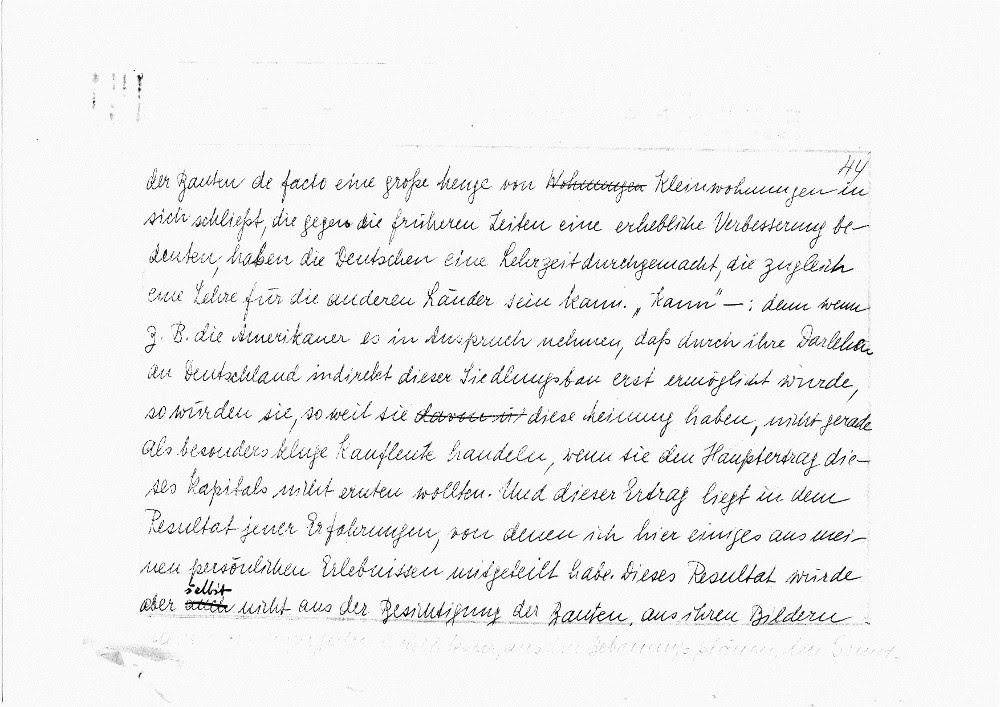 44
der Bauten de facto eine große Menge von Wohnungen Kleinwohnungen in
sich schließt, die gegen die früheren Zeiten eine erhebliche Verbesserung be-
deuten, haben die Deutschen eine Lehrzeit durchgemacht, die zugleich
eine Lehre für die anderen Länder sein kann. „Kann" —: denn wenn
z. B. die Amerikaner es in Anspruch nehmen, daß durch ihre Darlehen
an Deutschland indirekt dieser Siedlungsbau erst ermöglicht wurde,
so würden sie, soweit sie diese Meinung haben, nicht gerade
als besonders kluge Kaufleute handeln, wenn sie den Hauptertrag die-
ses Kapitals nicht ernten wollten. Und dieser Ertrag liegt in dem
Resultat jener Erfahrungen, von denen ich hier einiges aus mei-
nen persönlichen Erlebnissen mitgeteilt habe. Dieses Resultat würde
selbst
aber auch nicht aus der Besichtigung der Bauten, aus ihren Bildern
aus den Bebauungsplänen, den